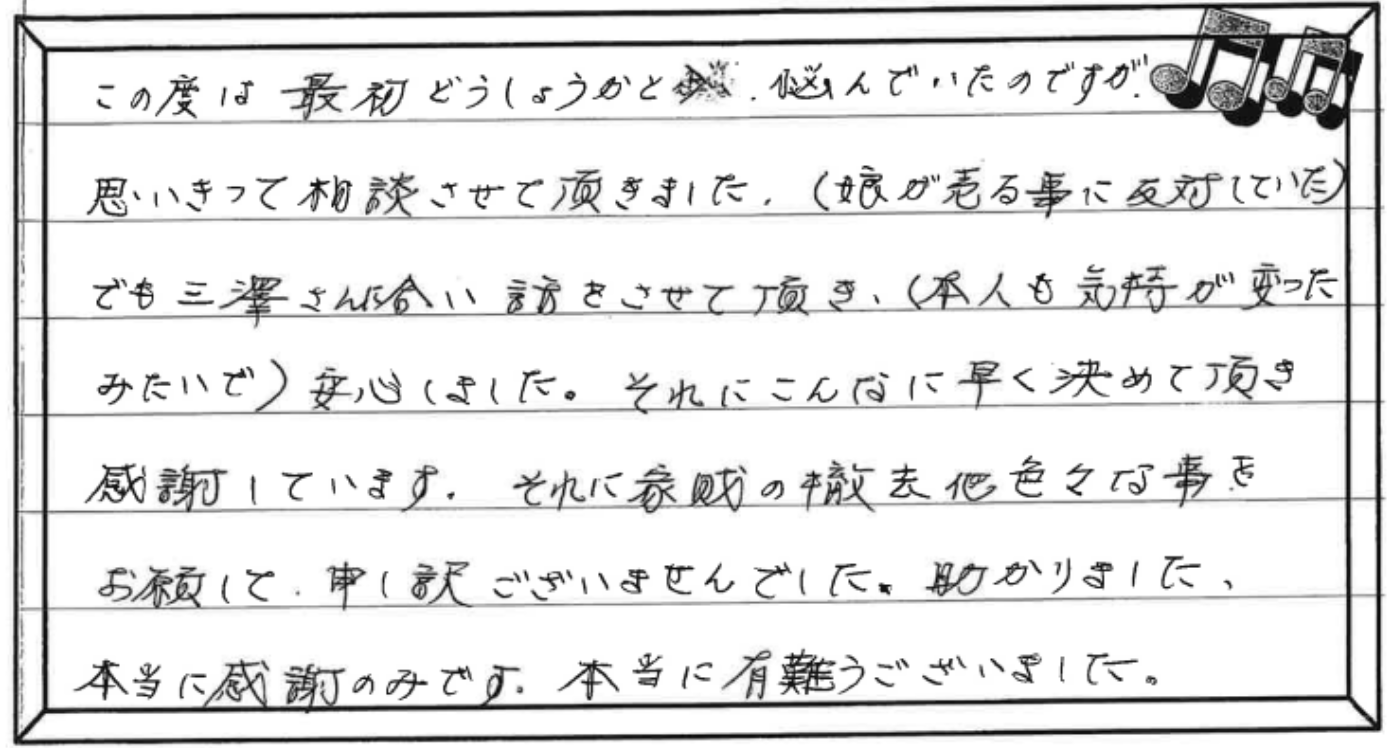 この度は最初どうしょうかと、悩んでいたのですが、
思いきって相談させて頂きました。(娘が売る事に反対していた)
でも三澤さんに合い話をさせて頂き、(本人も気持が変った
みたいで)安心しました。それにこんなに早く決めて頂き
感謝しています。それに家財の撤去他色々な事を
お願して、申し訳ございませんでした。助かりました、
本当に感謝のみです。本当に有難うございました。